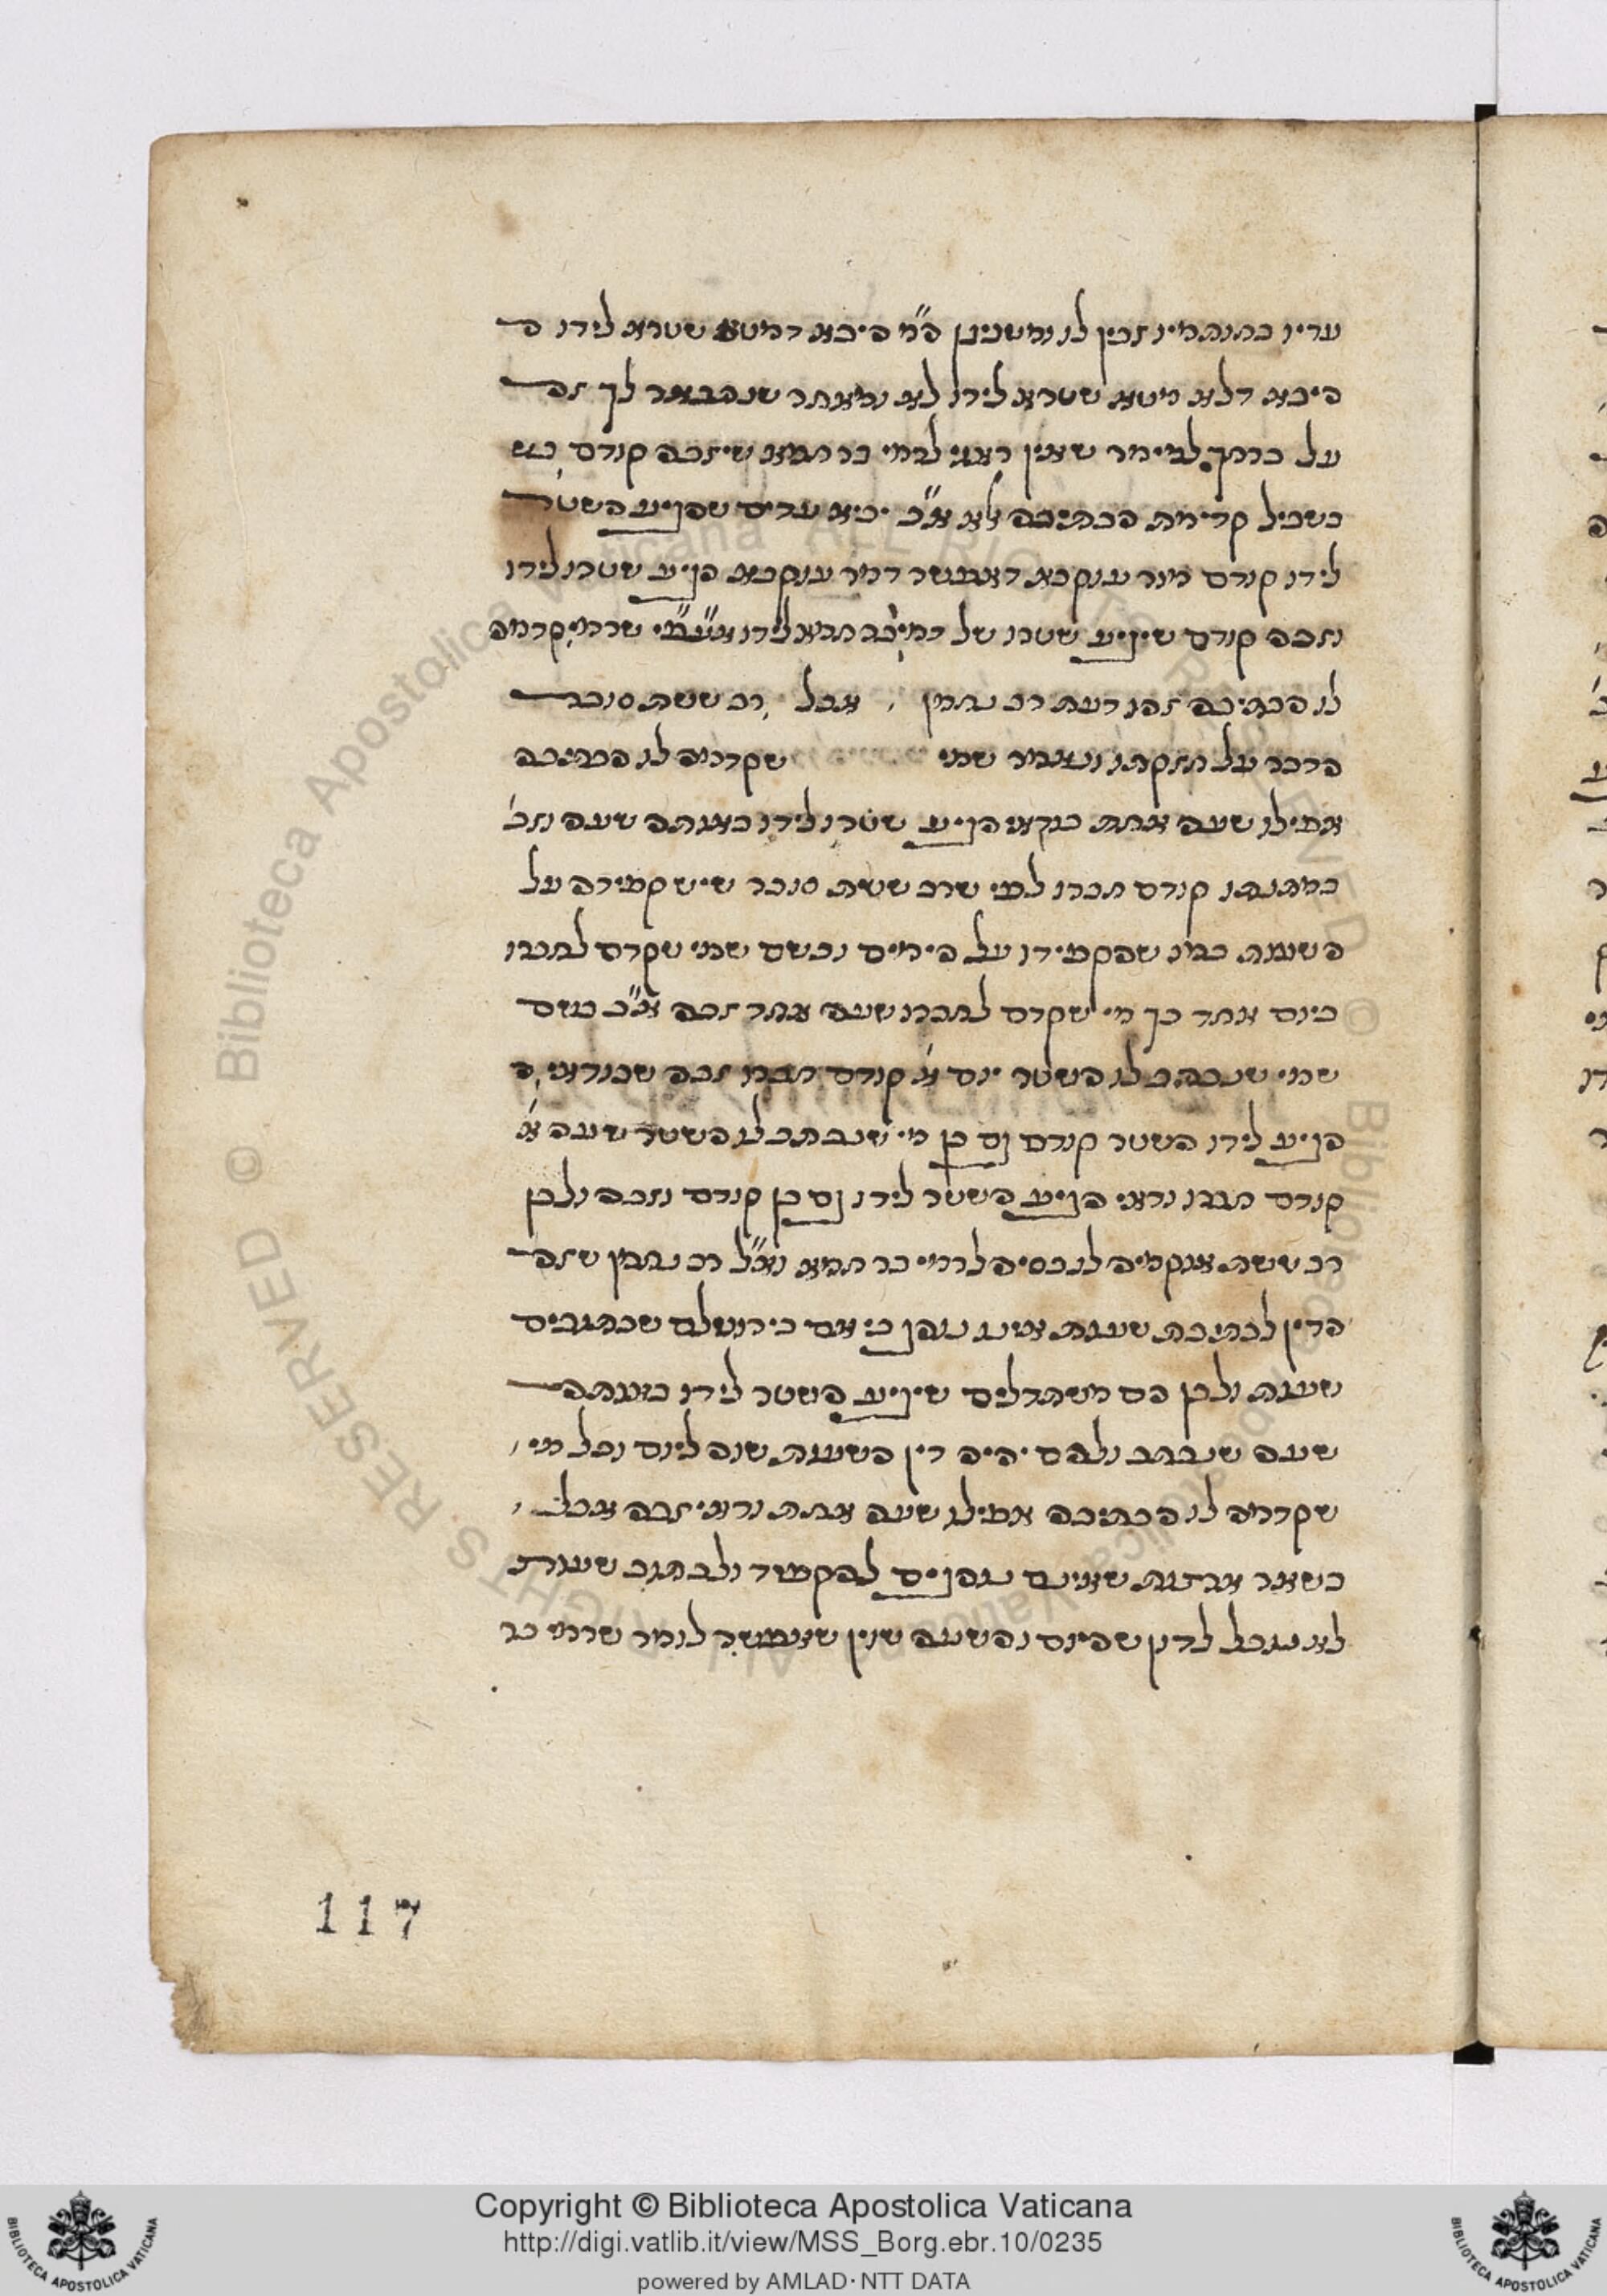 עדיו בחתומיו זכין לו ומשנינן ה״מ היכא דמטא שטרא לידו ה
היכא דלא מטא שטרא לידו לא ומאחר שנתבאר לך זה
על כרחך לומר שאין ראוי לרמי בר חמא שיזכה קודם
בשביל קדימת הכתיבה אלא א״כ יביא עדים שהגיע השטר
לידו קודם מור עוקבא דאפשר דמר עוקבא הגיע שטרו לידו
וזכה קודם שיגיע שטרו של רמי בר חמא לידו אע״פ שרמי קדמה
לו הכתיבה זהו דעת רב נחמן אבל רב ששת סובר
הדבר על חזקתו ונאמר שמי שקדמה לו הכתיבה
אפילו שעה אחת בודאי הגיע שטרו לידו באותה שעה וזכ׳
במתנתו קודם חברו לפי שרב ששת סובר שיש קפידה על
השעות כמו שהקפידו על הימים וכשם שמי שקדם לחברו
ביום אחד כך מי שקדם לחברו שעה אחד זכה א״כ כשם
שמי שנכתב לו השטר יום א׳ קודם חברו זכה שבודאי ה
הגיע לידו השטר קודם גם כן מי שנכתב לו השטר שעה א׳
קודם חברו ודאי הגיע השטר לידו גם כן קודם וזכה ולכן
רב ששת אוקמיה לנכסיה לרמי בר חמא וא״ל רב נחמן שזה
הדין לכתיבת שעות אינו נוהג כי אם בירושלם שכותבים
שעות ולכן הם משתדלים שיגיע השטר לידו באותה
שעה שנכתב ולהם יהיה דין השעות שוה ליום וכל מי
שקדמה לו הכתיבה אפילו שעה אחת ודאי זכה אבל
בשאר ארצות שאינם נוהגים להקפיד ולכתוב שעות
לא נוכל לדון שהיום והשעה שוין שאפשר לומר שרמי בר
117
Copyright © Biblioteca Apostolica Vaticana
http://digi.vatlib.it/view/MSS_Borg.ebr.10/0235
powered by AMLAD · NTT DATA